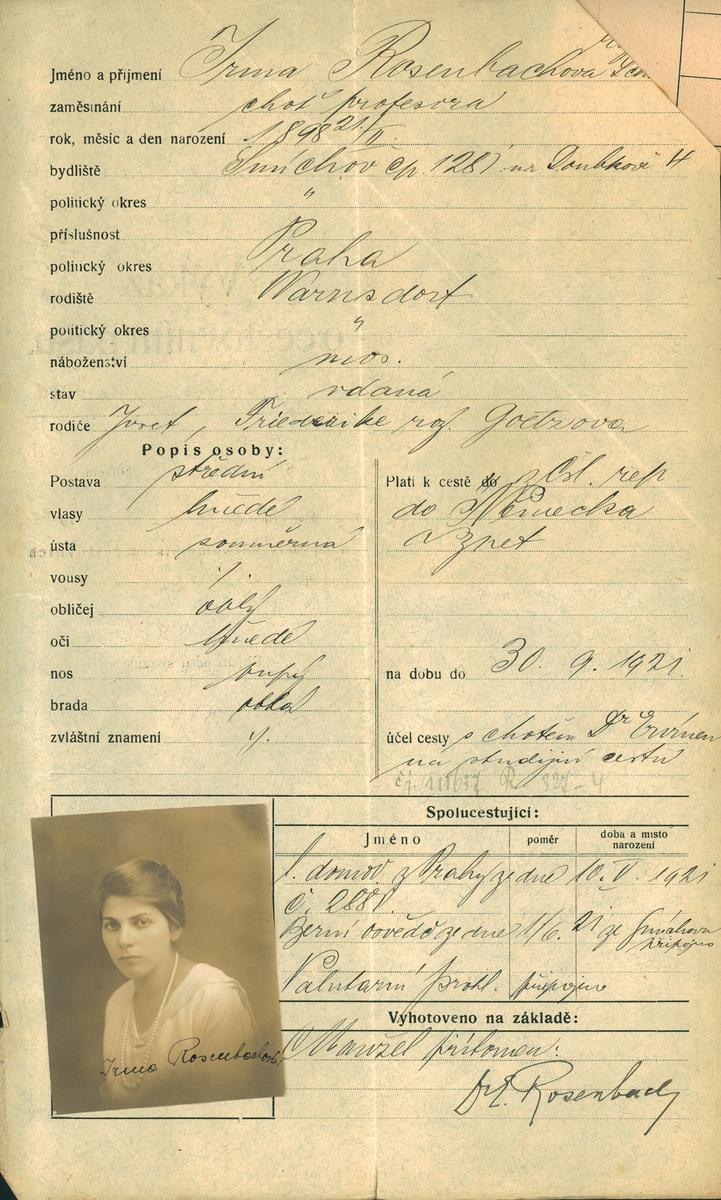 Jméno a příjmení Irma Rosenbachová
zaměstnání choť profesora
rok, měsíc a den narození 1898 21/II.
bydliště Smíchov čp. 1281 na Doubkové 4
politický okres "
příslušnost
politický okres Praha
rodiště Warnsdorf
politický okres "
náboženství mos.
stav vdaná
rodiče Josef, Friederike roz. Goetzova
Popis osoby:
Postava střední
vlasy hnědé
ústa souměrná
vousy ·/.
obličej oválý
oči hnědé
nos tupý
brada oblá
zvláštní znamení ·/.
Platí k cestě do z Čsl. rep
do Německa
a zpet
na dobu do 30. 9. 1921.
účel cesty s chotěm Dr Ervínem
na studijní cestu
Spolucestující:
Jméno poměr doba a místo narození
l. domov. z Prahy ze dne 10. V. 1921
č. 2881
Berní osvědč ze dne 1/6. 21 ze Smíchova
připojeno
Valutární prohl. připojeno
Vyhotoveno na základě:
Manžel přítomen:
Dr E. Rosenbach
Irma Rosenbachová